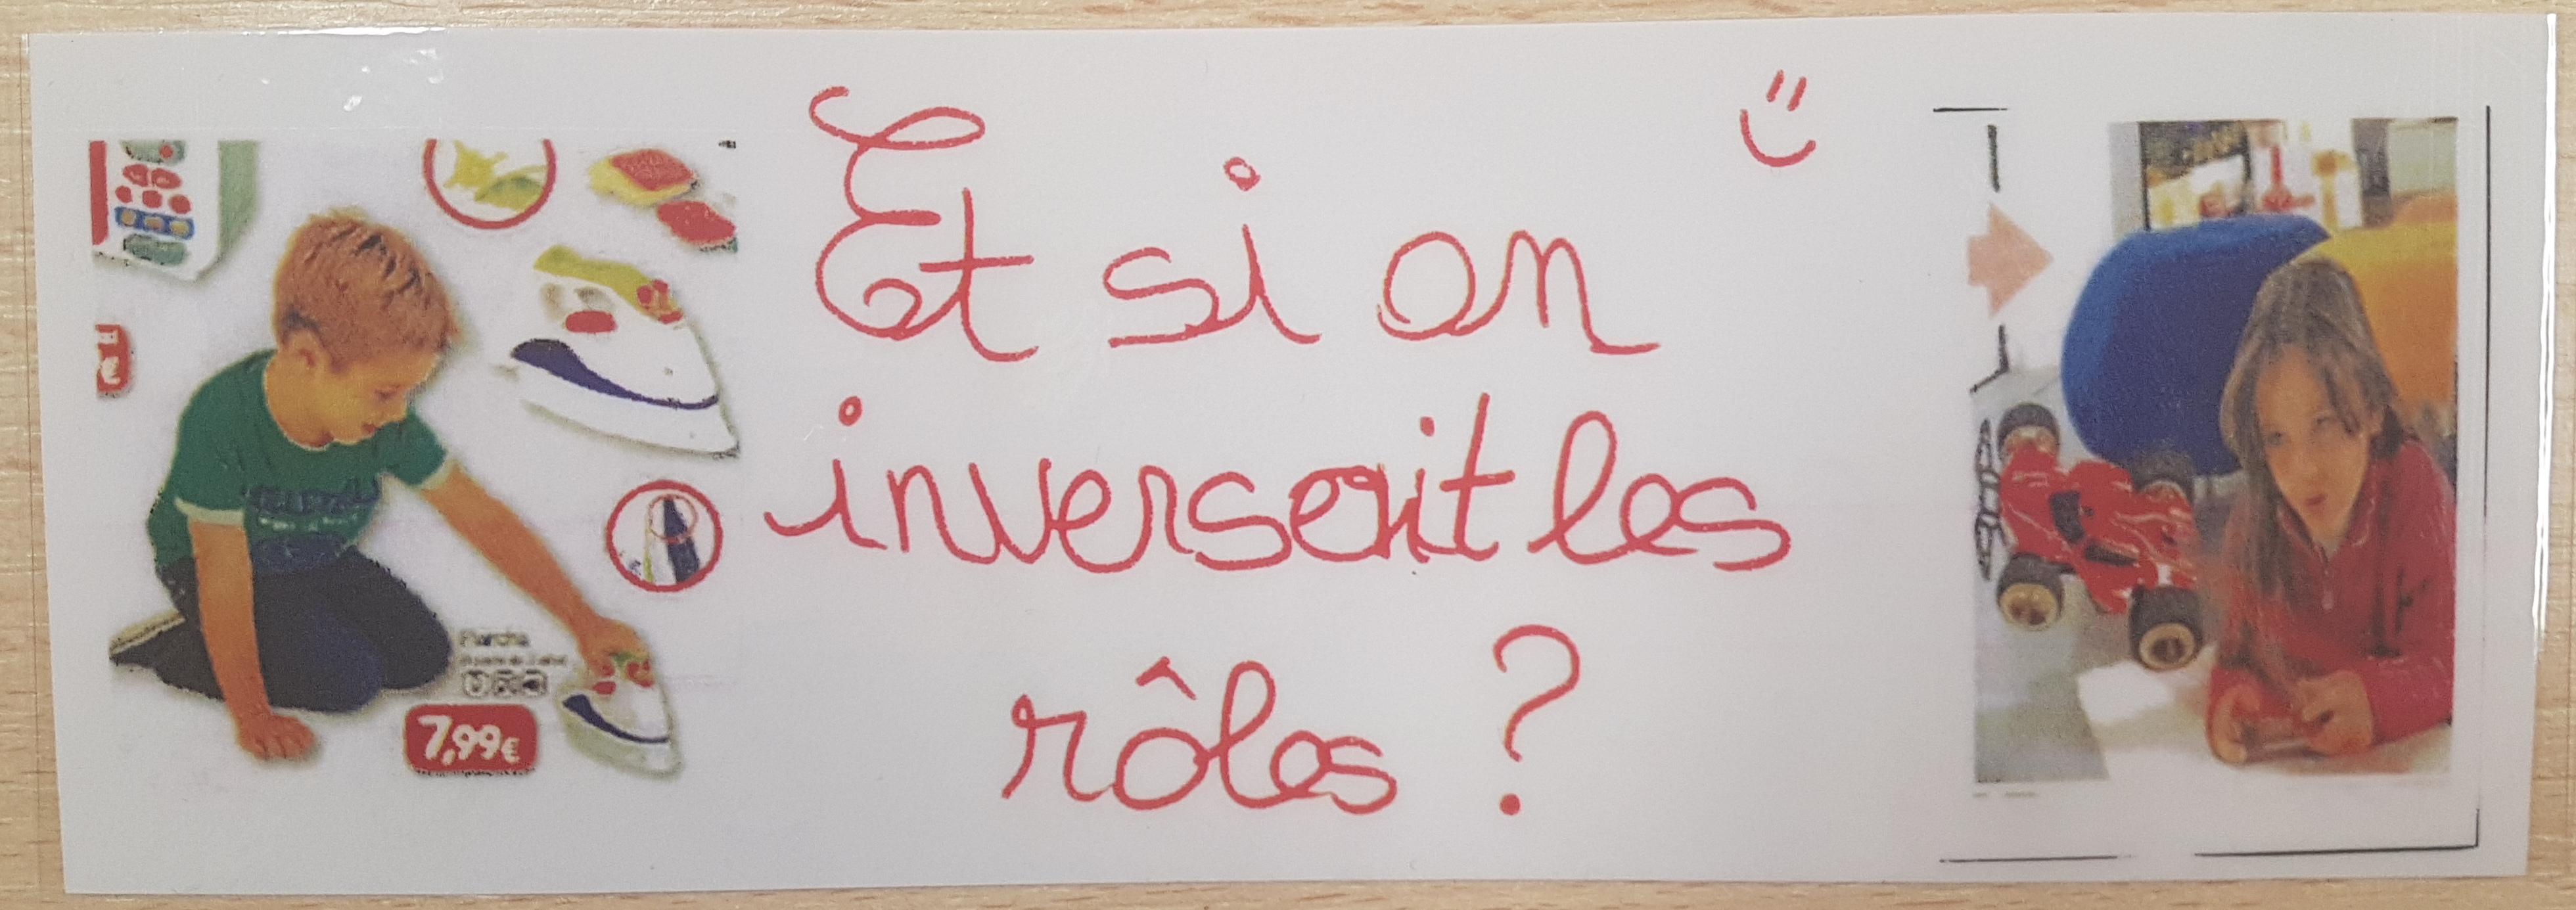 Et si on
inversait les
rôles ?
€
Plancha
7,99€